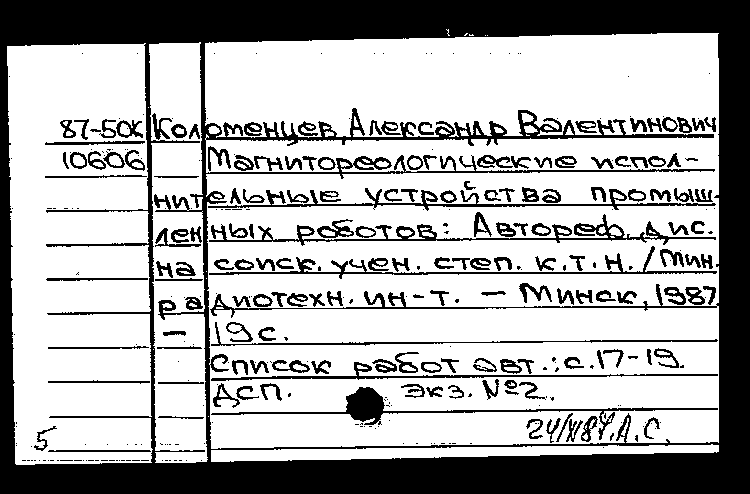 87-50к Коломенцев, Александр Валентинович
10606 Магнитореологические испол-
нительные устройства промыш-
ленных роботов: Автореф. дис.
на соиск. учен. степ. к.т.н. / Мин.
радиотехн. ин-т. — Минск, 1987
— 19 с.
Список работ авт.: с. 17-19.
ДСП. экз. №2.
5